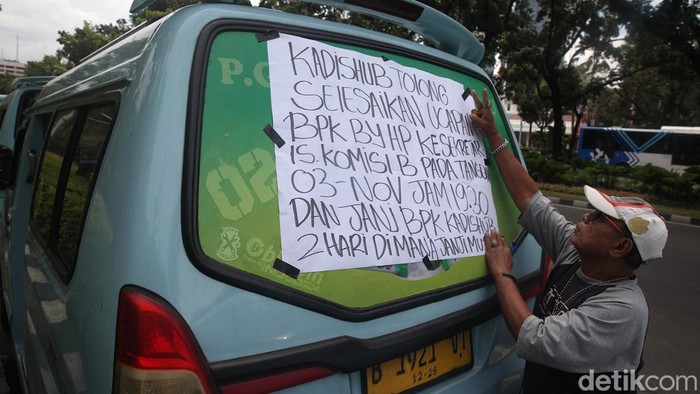 P.C
KADISHUB TOLONG
SELESAIKAN UCAPAN
BPK BY HP KE SEKRETARIS
IS. KOMISI B PADA TANGGAL
03-NOV JAM 19.30
DAN JANJI BPK KADISHUB
2 HARI DIMANA JANJI MU
02
B 1921 VT
12-26
detikcom